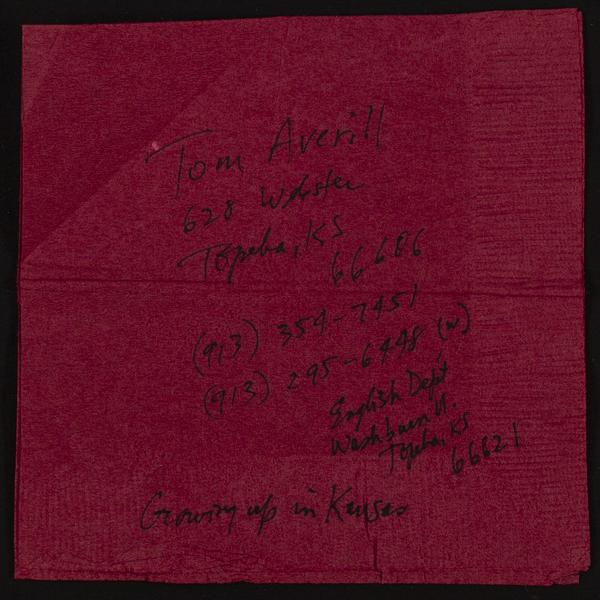 Tom Averill
628 Webster
Topeka, KS
66686
(913) 354-7451
(913) 295-6448 (w)
English Dept
Washburn U.
Topeka, KS
66621
Growing up in Kansas